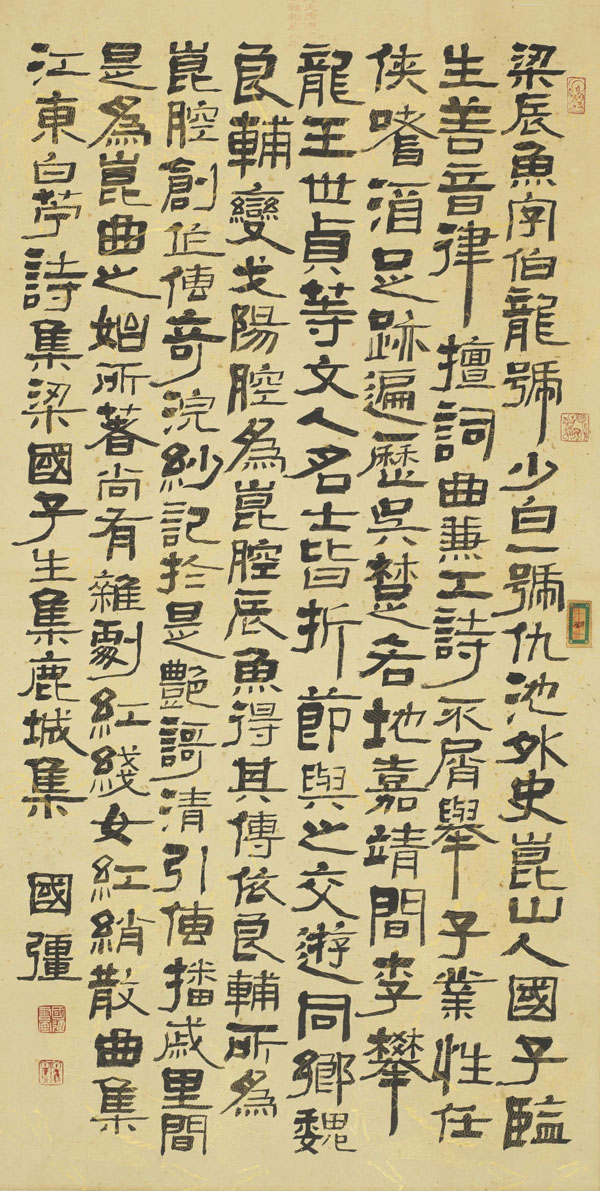 梁辰魚字伯龍號少白一號仇池外史崑山人國子監
生善音律擅詞曲兼工詩不屑舉子業性任
俠嗜酒足跡遍歷吳楚名地嘉靖間李攀
龍王世貞等文人名士皆折節與之交遊同鄉魏
良輔變弋陽腔為崑腔辰魚得其傳依良輔所為
崑腔創作傳奇浣紗記於是艷謌清引傳播戚里間
是為崑曲之始所著尚有雜劇紅綫女紅綃散曲集
江東白苧詩集梁國子生集鹿城集
國彊